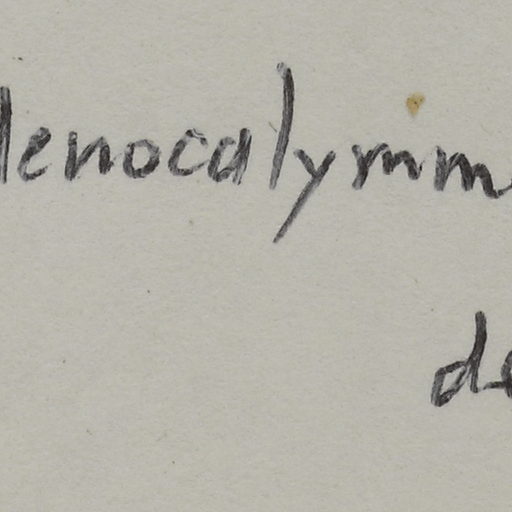 denocalymm
de